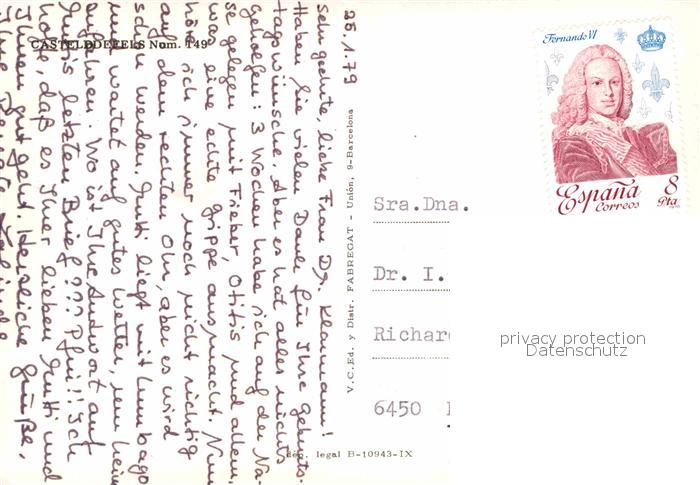 CASTELLDEFELS Num. 149
25.1.79
Sehr geehrte, liebe Frau Dr. Klaumann!
Haben Sie vielen Dank für Ihre Geburts-
tagswünsche. Aber es hat alles nichts
geholfen: 3 Wochen habe ich auf der Na-
se gelegen mit Fieber, Otitis und allem,
was eine echte Grippe ausmacht. Nun
höre ich immer noch nicht richtig
auf dem rechten Ohr, aber es wird
schon werden. Mutti liegt mit Lumbago
und wartet auf gutes Wetter, um heim
zufahren. Wo ist Ihre Antwort auf
letzten Brief??? Pfui!! Ich
hoffe, daß es Ihrer lieben Mutti und
Ihnen gut geht. Herzliche Grüße,
Ihre
V.C.Ed. y Distr. FABREGAT - Unión, 9-Barcelona
dép. legal B-10943-IX
Fernando VI
España
Correos
8
Pta
Sra.Dna.
Dr. I.
Richar
6450
privacy protection
Datenschutz